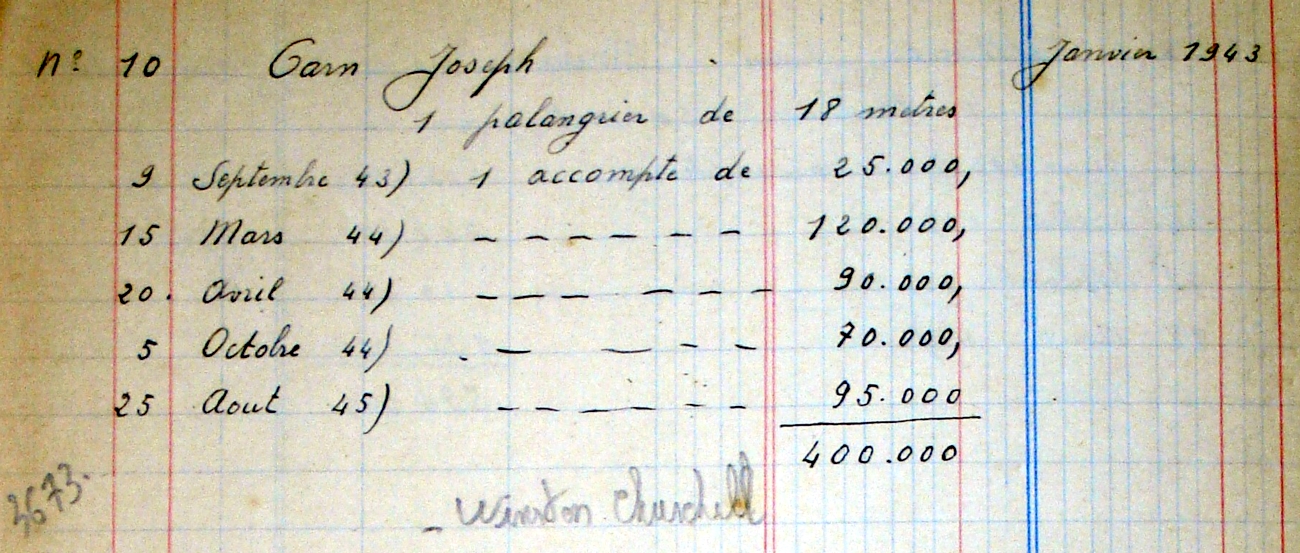 n° 10 Carn Joseph Janvier 1943
1 palangrier de 18 metres
9 Septembre 43) 1 accompte de 25.000,
15 Mars 44) – – – – – – 120.000,
20. Avril 44) – – – – – – 90.000,
5 Octobre 44) – – – – 70.000,
25 Aout 45) – – – – – – 95.000
400.000
3673.
– Winston Churchill